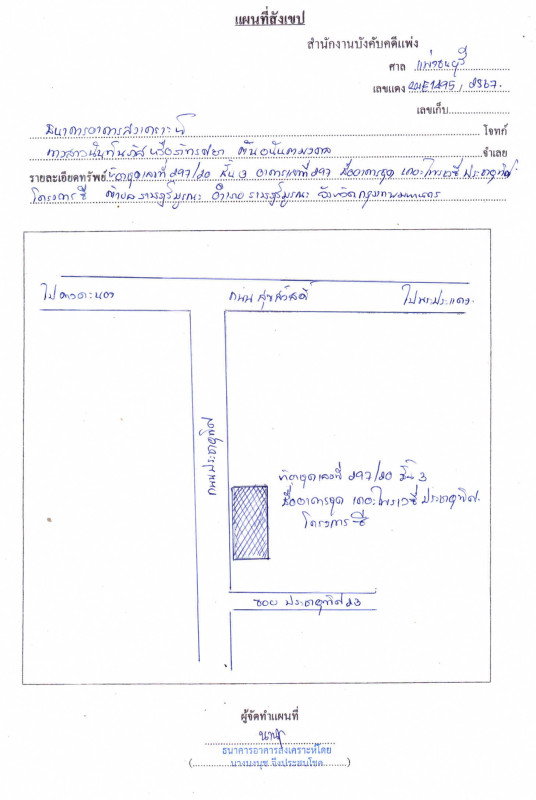 แผนที่สังเขป
สำนักงานบังคับคดีแพ่ง
ศาล แพ่งธนบุรี
เลขแดง ผบE1495/2567
เลขเก็บ
ธนาคารอาคารสงเคราะห์ โจทก์
นางสาว หรือ จำเลย
รายละเอียดทรัพย์ ห้องชุดเลขที่ 297/20 ชั้น 3 อาคารเลขที่ 297 ชื่ออาคารชุด เดอะไพรเวซี่ ประชาอุทิศ
โครงการ ซี ตำบล ราษฎร์บูรณะ อำเภอ ราษฎร์บูรณะ จังหวัดกรุงเทพมหานคร
ไปดาวคะนอง ถนน สุขสวัสดิ์ ไปพระประแดง
ถนนประชาอุทิศ
ห้องชุดเลขที่ 297/20 ชั้น 3
ชื่ออาคารชุด เดอะไพรเวซี่ ประชาอุทิศ
โครงการ ซี
ซอย ประชาอุทิศ 23
ผู้จัดทำแผนที่
ธนาคารอาคารสงเคราะห์โดย
(นางนงนุช จึงประสบโชค)